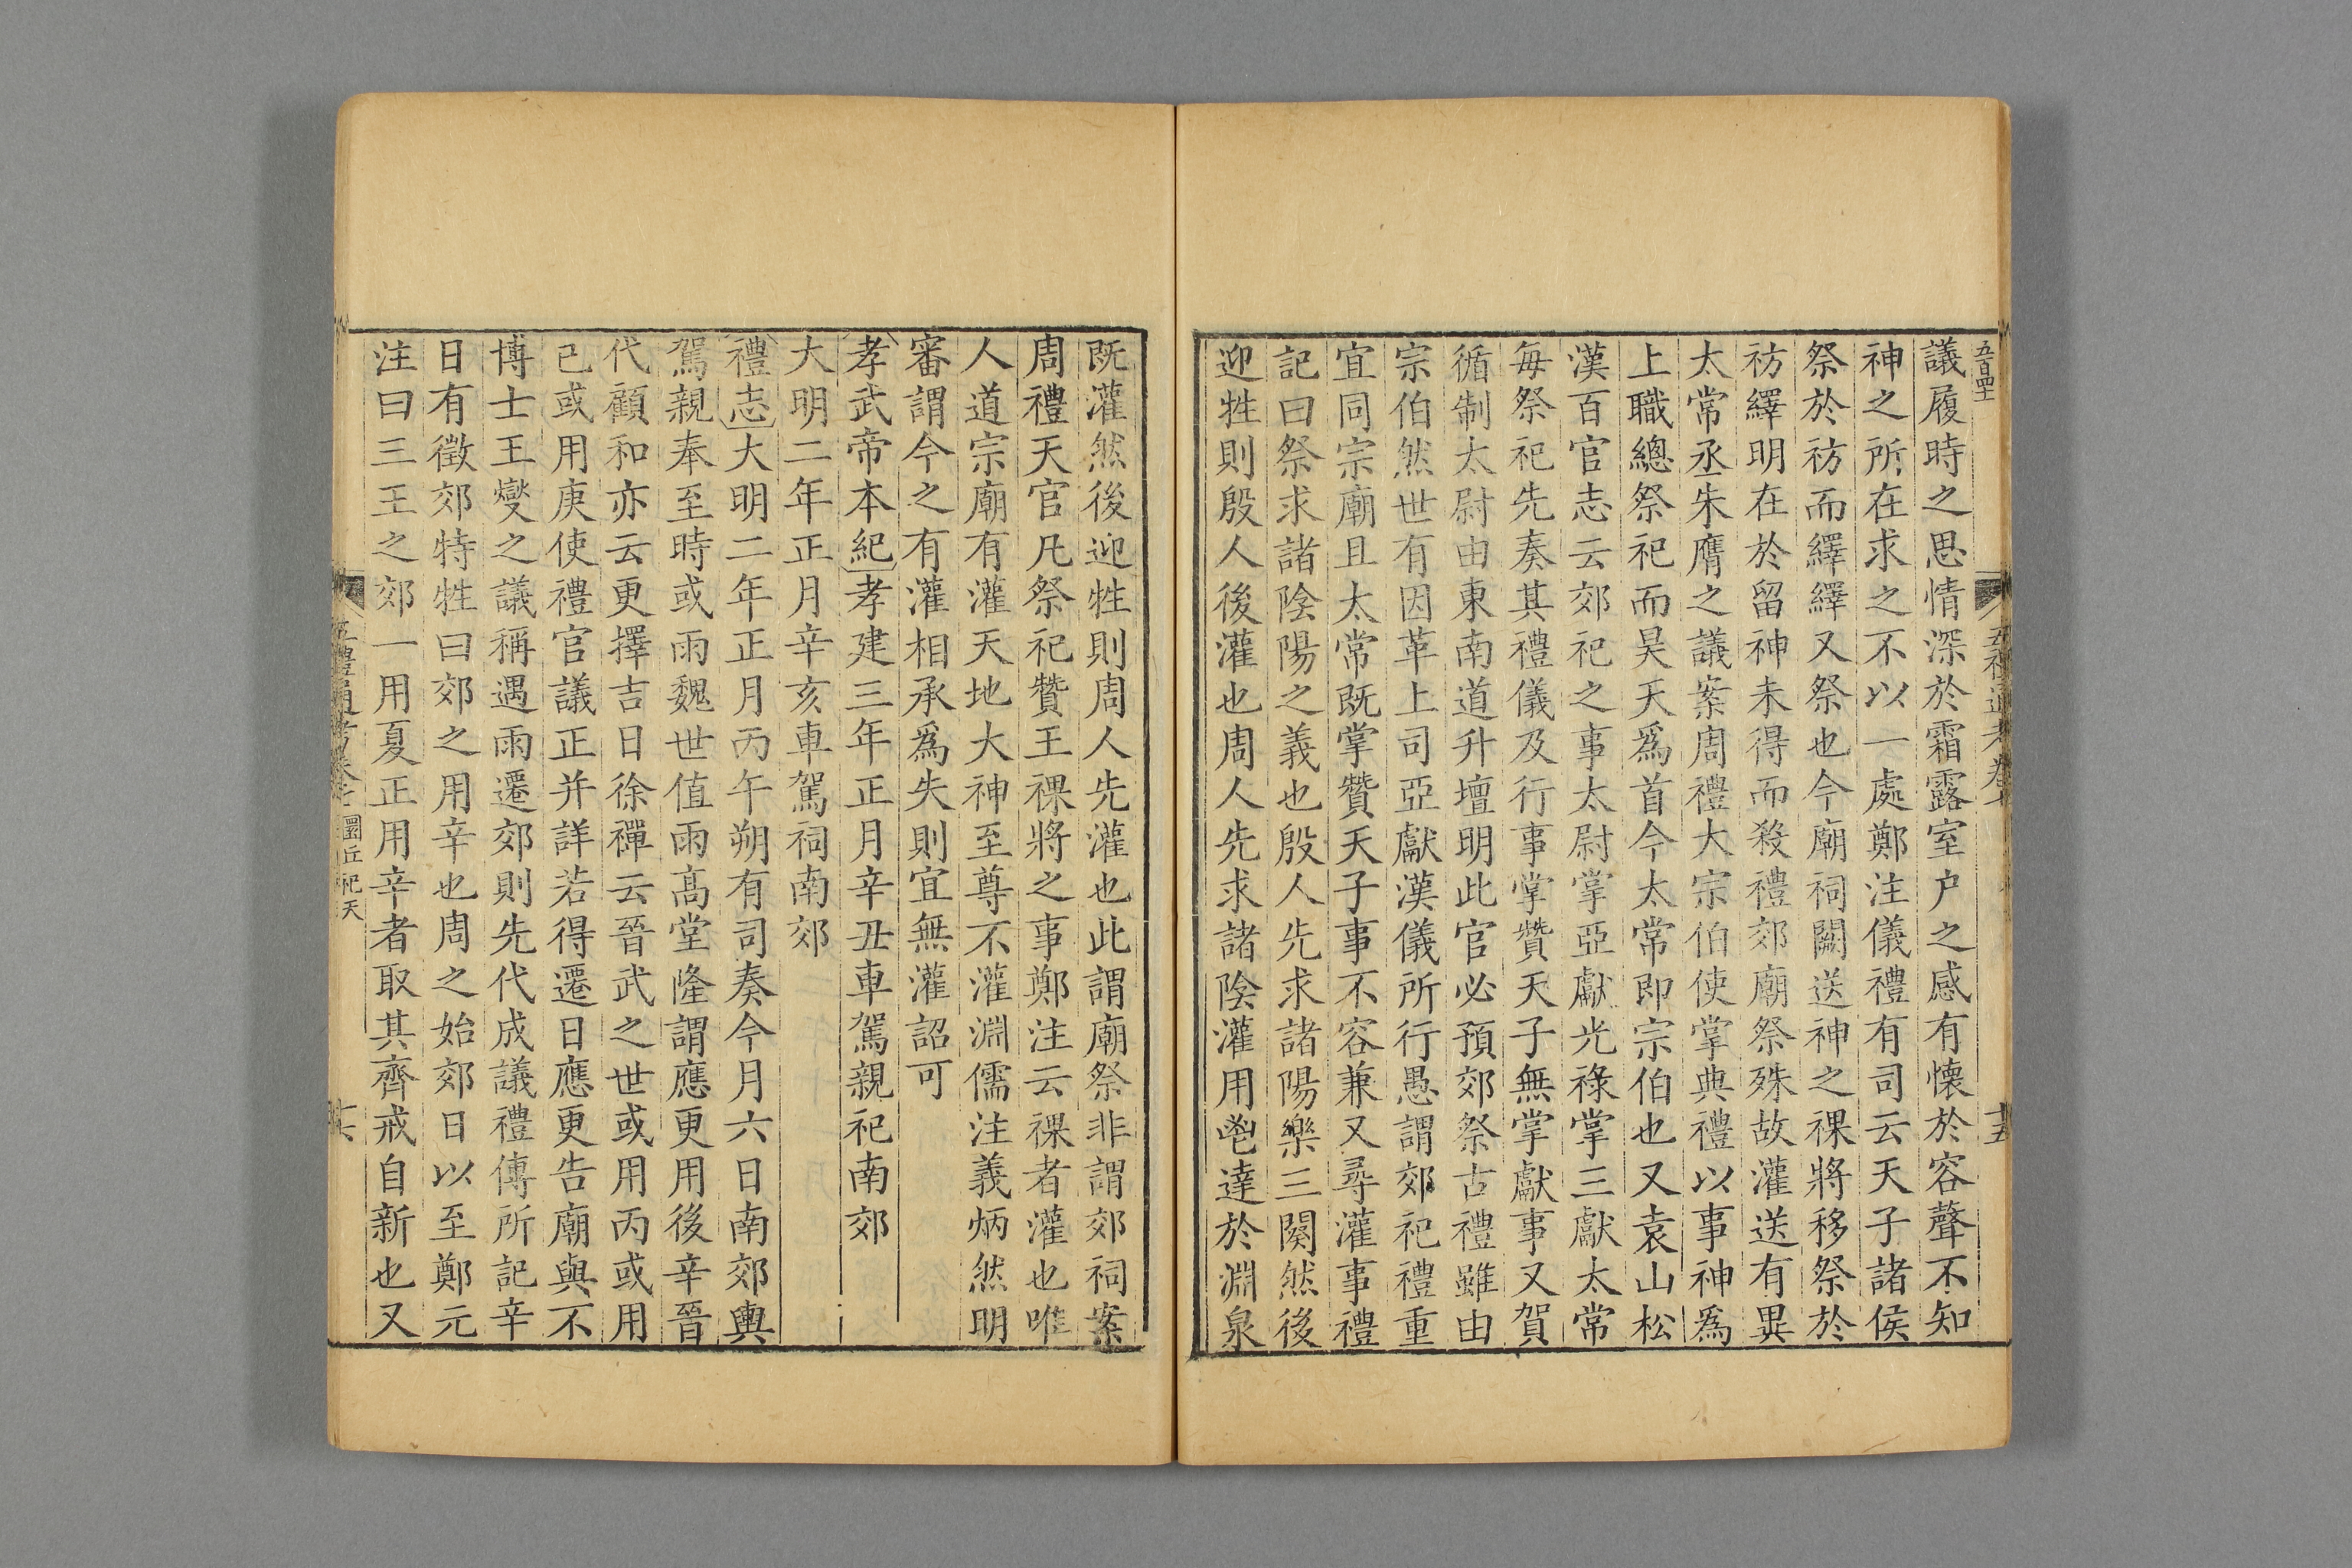 議履時之思情深於霜露室户之感有懐於容聲不知
神之所在求之不以一處鄭注儀禮有司云天子諸侯
祭於祊而繹繹又祭也今廟祠闕送神之祼將移祭於
祊繹明在於留神未得而殺禮郊廟祭殊故灌送有異
太常丞朱膺之議案周禮大宗伯使掌典禮以事神爲
上職總祭祀而昊天爲首今太常即宗伯也又袁山松
漢百官志云郊祀之事太尉掌亞獻光祿掌三獻太常
每祭祀先奏其禮儀及行事掌贊天子無掌獻事又賀
循制太尉由東南道升壇明此官必預郊祭古禮雖由
宗伯然世有因革上司亞獻漢儀所行愚謂郊祀禮重
宜同宗廟且太常既掌贊天子事不容兼又尋灌事禮
記曰祭求諸陰陽之義也殷人先求諸陽樂三闋然後
迎牲則殷人後灌也周人先求諸陰灌用鬯達於淵泉
既灌然後迎牲則周人先灌也此謂廟祭非謂郊祠案
周禮天官凡祭祀贊王祼將之事鄭注云祼者灌也唯
人道宗廟有灌天地大神至尊不灌淵儒注義炳然明
審謂今之有灌相承爲失則宜無灌詔可
孝武帝本紀孝建三年正月辛丑車駕親祀南郊
大明二年正月辛亥車駕祠南郊
禮志大明二年正月丙午朔有司奏今月六日南郊輿
駕親奉至時或雨魏世值雨高堂隆謂應更用後辛晉
代顧和亦云更擇吉日徐禪云晉武之世或用丙或用
己或用庚使禮官議正并詳若得遷日應更告廟與不
博士王燮之議稱遇雨遷郊則先代成議禮傳所記辛
日有徵郊特牲曰郊之用辛也周之始郊日以至鄭元
注曰三王之郊一用夏正用辛者取其齊戒自新也又
五禮通考卷七 圜丘祀天